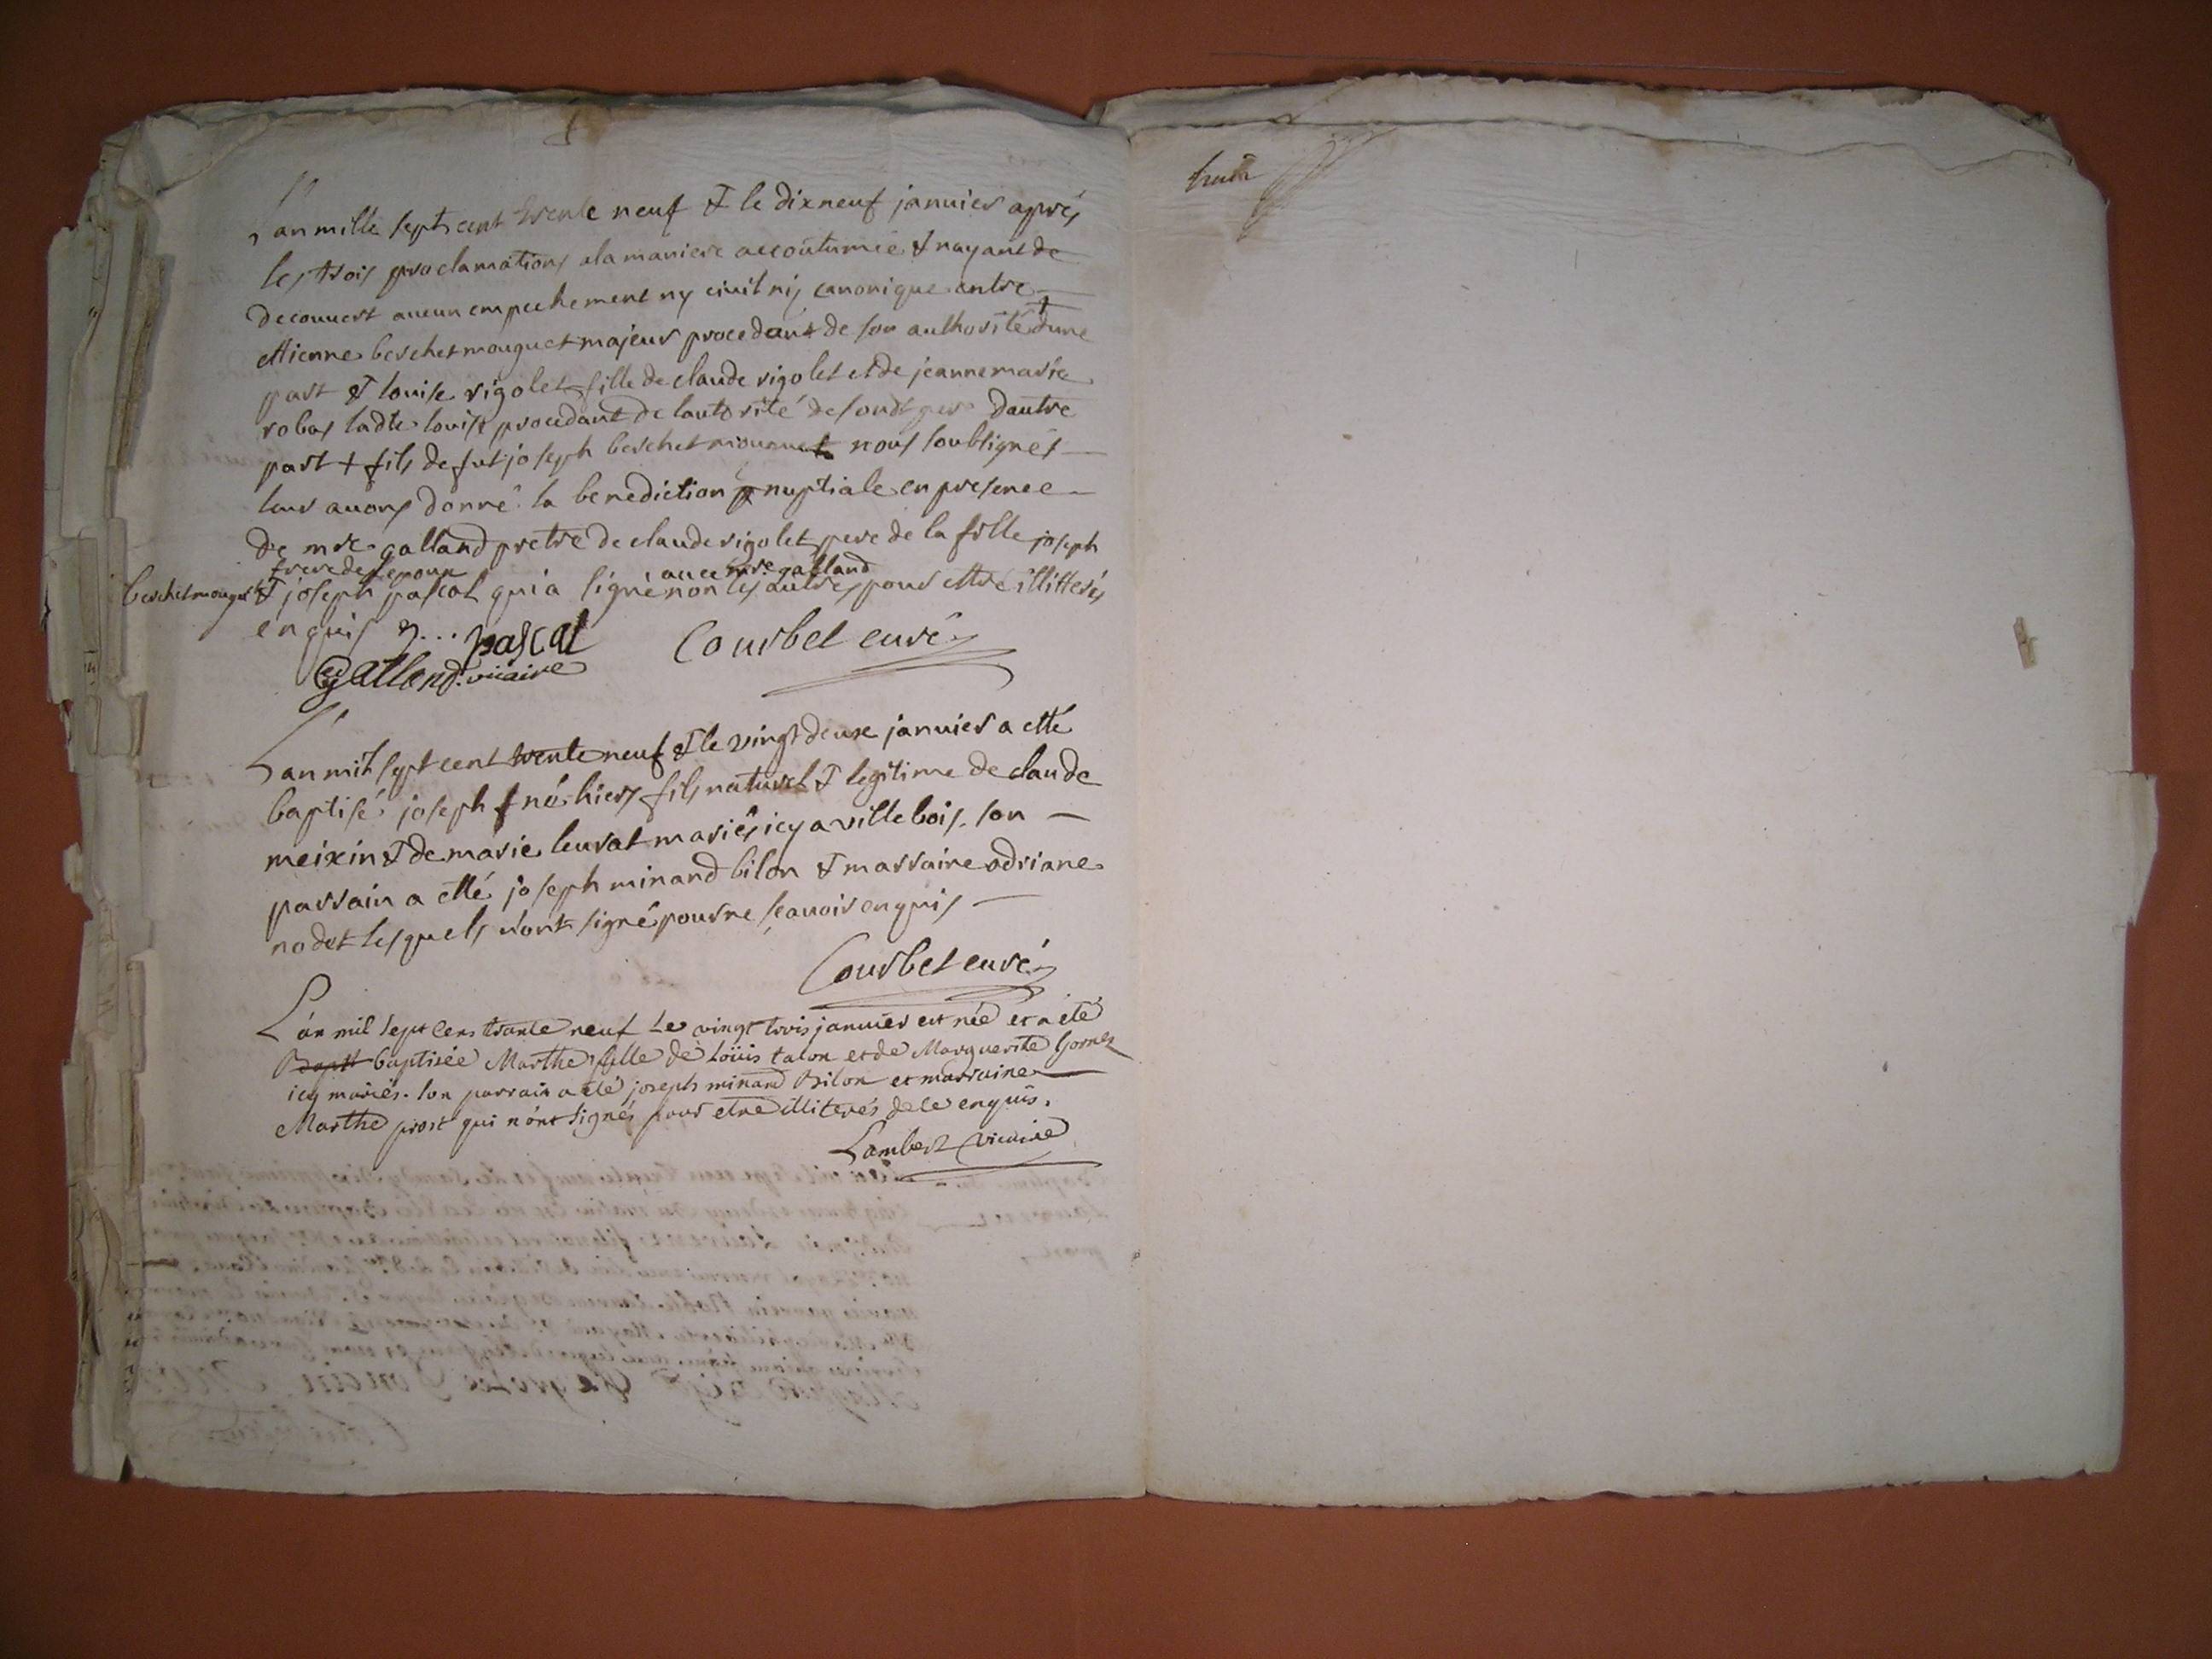 L'an mille sept cent trente neuf & le dixneuf janvier aprés
les trois proclamations a la maniere accoutumée & nayant de
decouvert aucun empechement ny civil nij canonique entre
ettienne berchet mouguet majeur procedant de son authorité + dune
part & louise rigolet fille de claude rigolet et de jeanne marie
robas ladte louise procedant de lautorité de sondt pere dautre
part + fils de fut joseph berchet mouguet nous soubsignés
leur avons donné la benediction nuptiale en presence
de mre galland pretre de claude rigolet pere de la fille joseph
frere de lepoux avec mre galland
berchet mouguet & joseph pascal qui a signé non les autres pour ettre illitterés
enquis
pascal Courbet curé
Galland vicaire
L'an mil sept cent trente neuf & le vingt deux janvier a etté
baptisé joseph né hiers fils naturel & legitime de claude
meixin & de marie leurat mariés icy a villebois son
parrain a etté joseph minand bilon & marraine adriane
nodet lesquels n'ont signé pour ne scavoir enquis
Courbet curé
L'an mil sept cens trante neuf le vingt trois janvier est née et a été
Bapti baptisée Marthe fille de loüis talon et de Marguerite Gornez
icy mariés. son parrain a été joseph minand Bilon et marraine
Marthe prost qui n'ont signés pour etre illiterés de ce enquis.
Lambert vicaire
huit